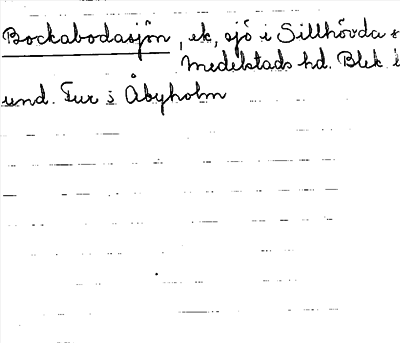 Bockabodasjön, ek, sjö i Sillhövda s
Medelstads hd. Blek i
und. Fur i Åbyholm